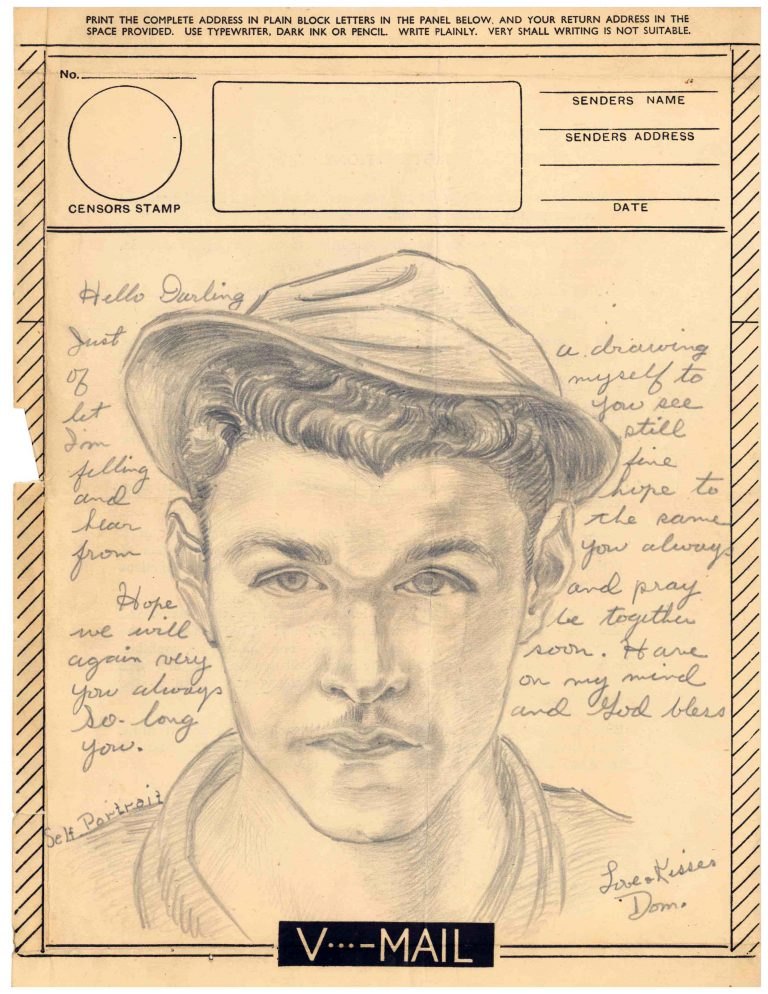 PRINT THE COMPLETE ADDRESS IN PLAIN BLOCK LETTERS IN THE PANEL BELOW, AND YOUR RETURN ADDRESS IN THE
SPACE PROVIDED. USE TYPEWRITER, DARK INK OR PENCIL. WRITE PLAINLY. VERY SMALL WRITING IS NOT SUITABLE.
No.
CENSORS STAMP
SENDERS NAME
SENDERS ADDRESS
DATE
Hello Darling
Just a drawing
of myself to
let you see
I'm still
filling fine
and hope to
hear the same
from you always
Hope and pray
we will be together
again very soon. Have
you always on my mind
so-long and God bless
you.
Self Portrait
Love & Kisses
Dom.
V···–MAIL